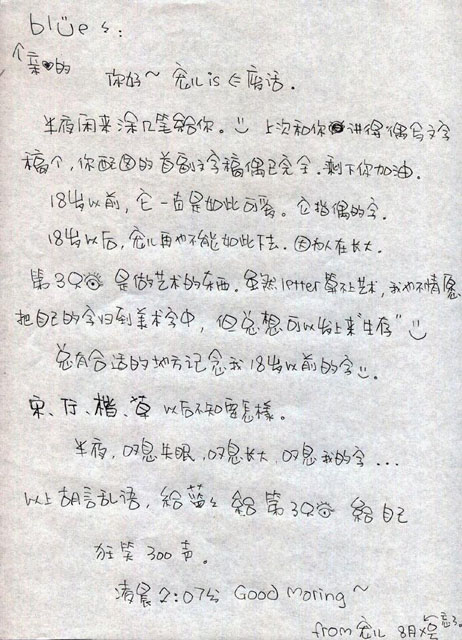 blüe々:
亲♥的
你好~ 宠儿is 在废话.
半夜闲来涂几笔给你。上次和你讲得偶写文字
稿个,你配图的首副文字稿偶已完全.剩下你加油.
18岁以前,它一直是如此可爱。它指偶的字.
18岁以后,宠儿再也不能如此下去.因为人在长大.
第3只 是做艺术的东西.虽然letter算不上艺术,我也不情愿
把自己的字归到美术字中,但总想可以出上来"生存"
总有合适的地方记念我18岁以前的字.
宋、行、楷、草 以后不知要怎樣。
半夜,叹息失眠,叹息长大,叹息我的字...
以上胡言乱语,给蓝々 给第3只 给自己
狂笑300声。
凌晨2:07分 Good Moring~
from 宠儿 8月